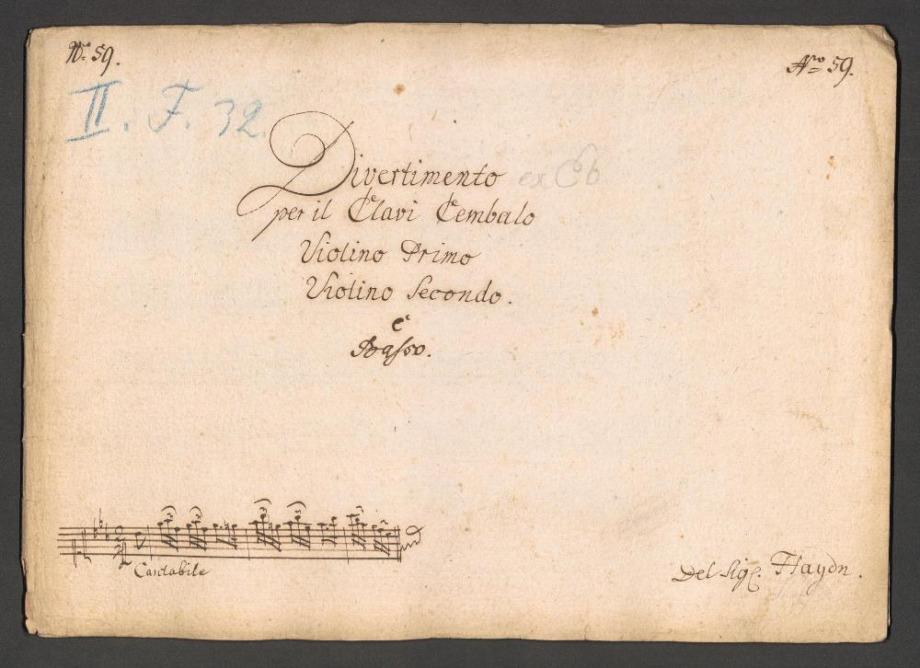 N.º 59.
Nro 59.
II. F. 32.
Divertimento ex Cb
per il Clavi Cembalo
Violino Primo
Violino Secondo.
e
Basso.
Cantabile
Del Sigr. Haydn.